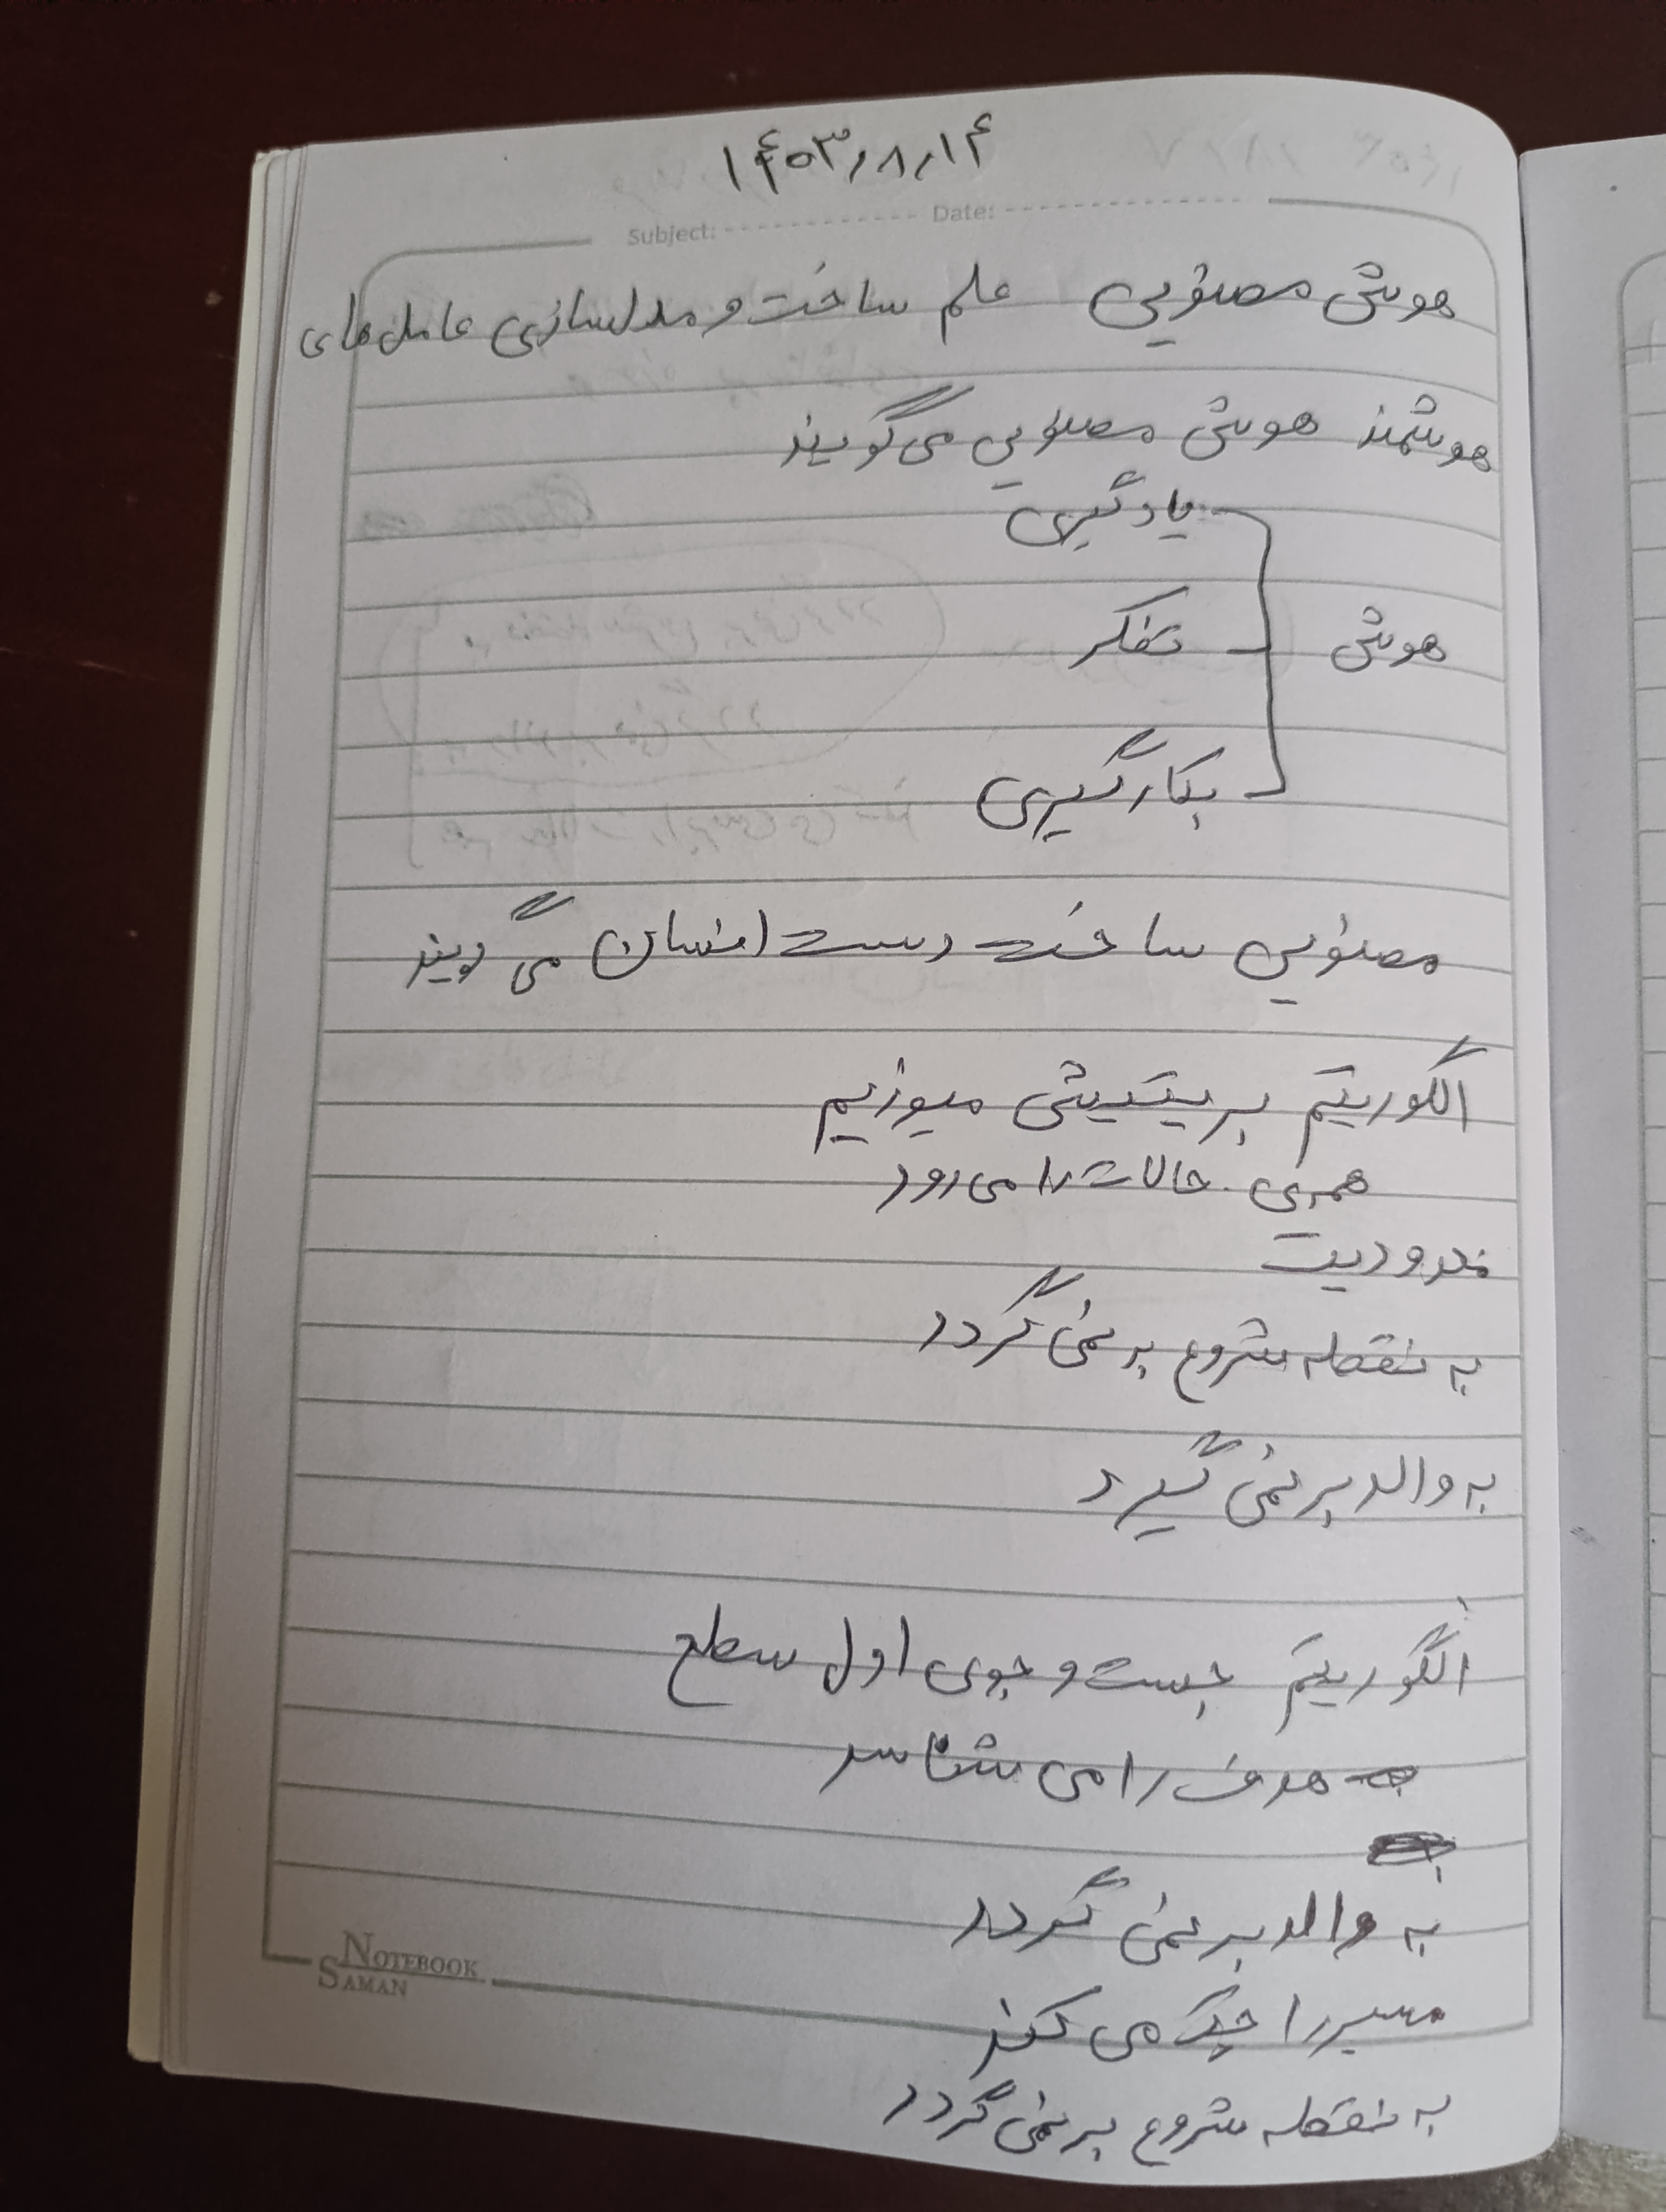 ۱۴۰۳/۸/۱۴
Subject: Date:
هوش مصنوعی علم ساخت و مدلسازی عامل‌های
هوشمند هوش مصنوعی می‌گویند
یادگیری
هوش تفکر
بکارگیری
مصنوعی ساخت دست انسان می گویند
الگوریتم بریتیش میوزیم
همه‌ی حالات را می‌رود
محدودیت
به نقطه شروع بر نمی گردد
به والد بر نمی گیرد
الگوریتم جست و جوی اول سطح
هدف را می شناسد
به والد بر نمی گردد
مسیر را چک می کند
به نقطه شروع بر نمی گردد
NOTEBOOK
SAMAN